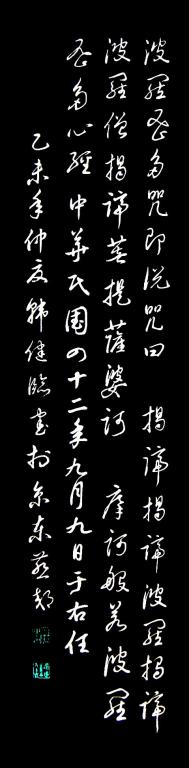 波羅蜜多咒即說咒曰 揭諦揭諦波羅揭諦
波羅僧揭諦菩提薩婆訶 摩訶般若波羅
蜜多心經中華民國四十二年九月九日于右任
乙未年仲夏韩健臨書於京东燕郊